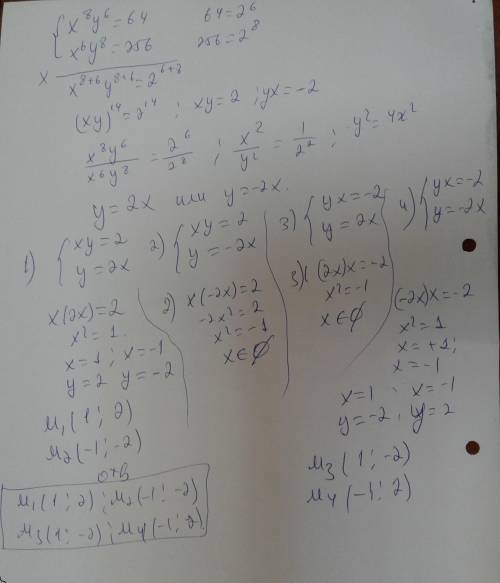 { x⁸y⁶ = 64    64 = 2⁶
x⁶y⁸ = 256    256 = 2⁸
x x⁸⁺⁶y⁸⁺⁶ = 2⁶⁺⁸
(xy)¹⁴ = 2¹⁴ ; xy = 2 ; yx = -2
x⁸y⁶/x⁶y⁸ = 2⁶/2⁸ ; x²/y² = 1/2² ; y² = 4x²
y = 2x или y = -2x.
1) { xy = 2
y = 2x
x(2x) = 2
x² = 1.
x = 1 ; x = -1
y = 2 y = -2
M₁(1 ; 2)
M₂(-1 ; -2)
2) { xy = 2
y = -2x
2) x(-2x) = 2
-2x² = 2
x² = -1
x ∈ ∅
3) { yx = -2
y = 2x
3) (2x)x = -2
x² = -1
x ∈ ∅
4) { yx = -2
y = -2x
(-2x)x = -2
x² = 1
x = +1;
x = -1
x = 1 ; x = -1
y = -2 , y = 2
M₃(1 ; -2)
M₄(-1 ; 2)
отв
M₁(1 ; 2) ; M₂(-1 ; -2)
M₃(1 ; -2) ; M₄(-1 ; 2)